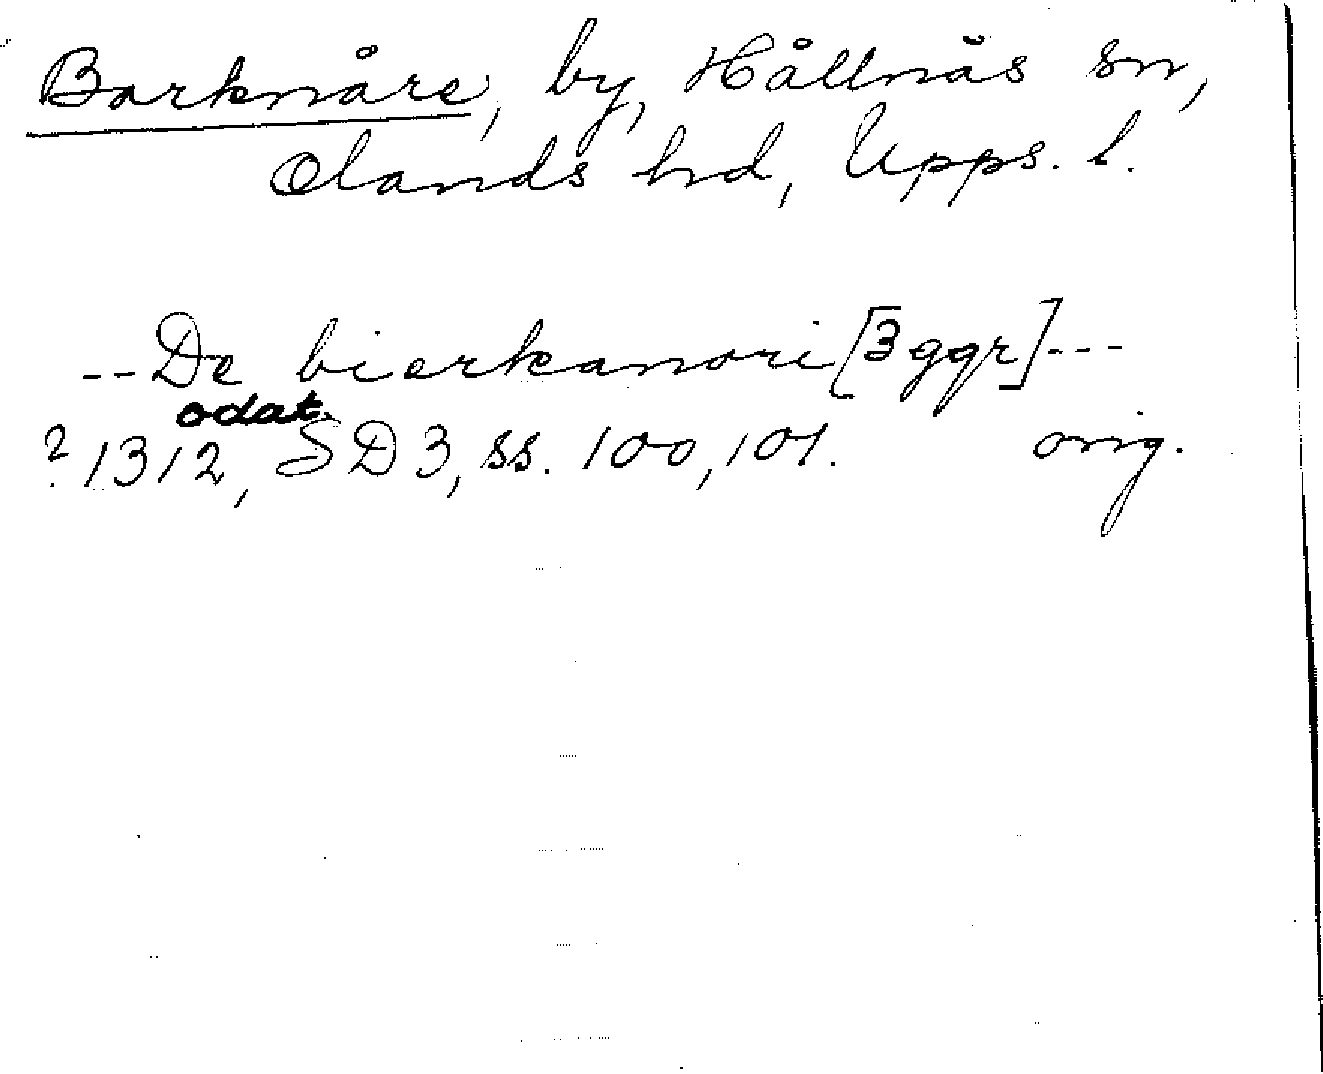 Barknåre, by, Hållnäs sn,
Olands hd, Upps. l.
--De bierkanori [3 ggr]---
odat.
? 1312, SD3, ss. 100, 101. orig.